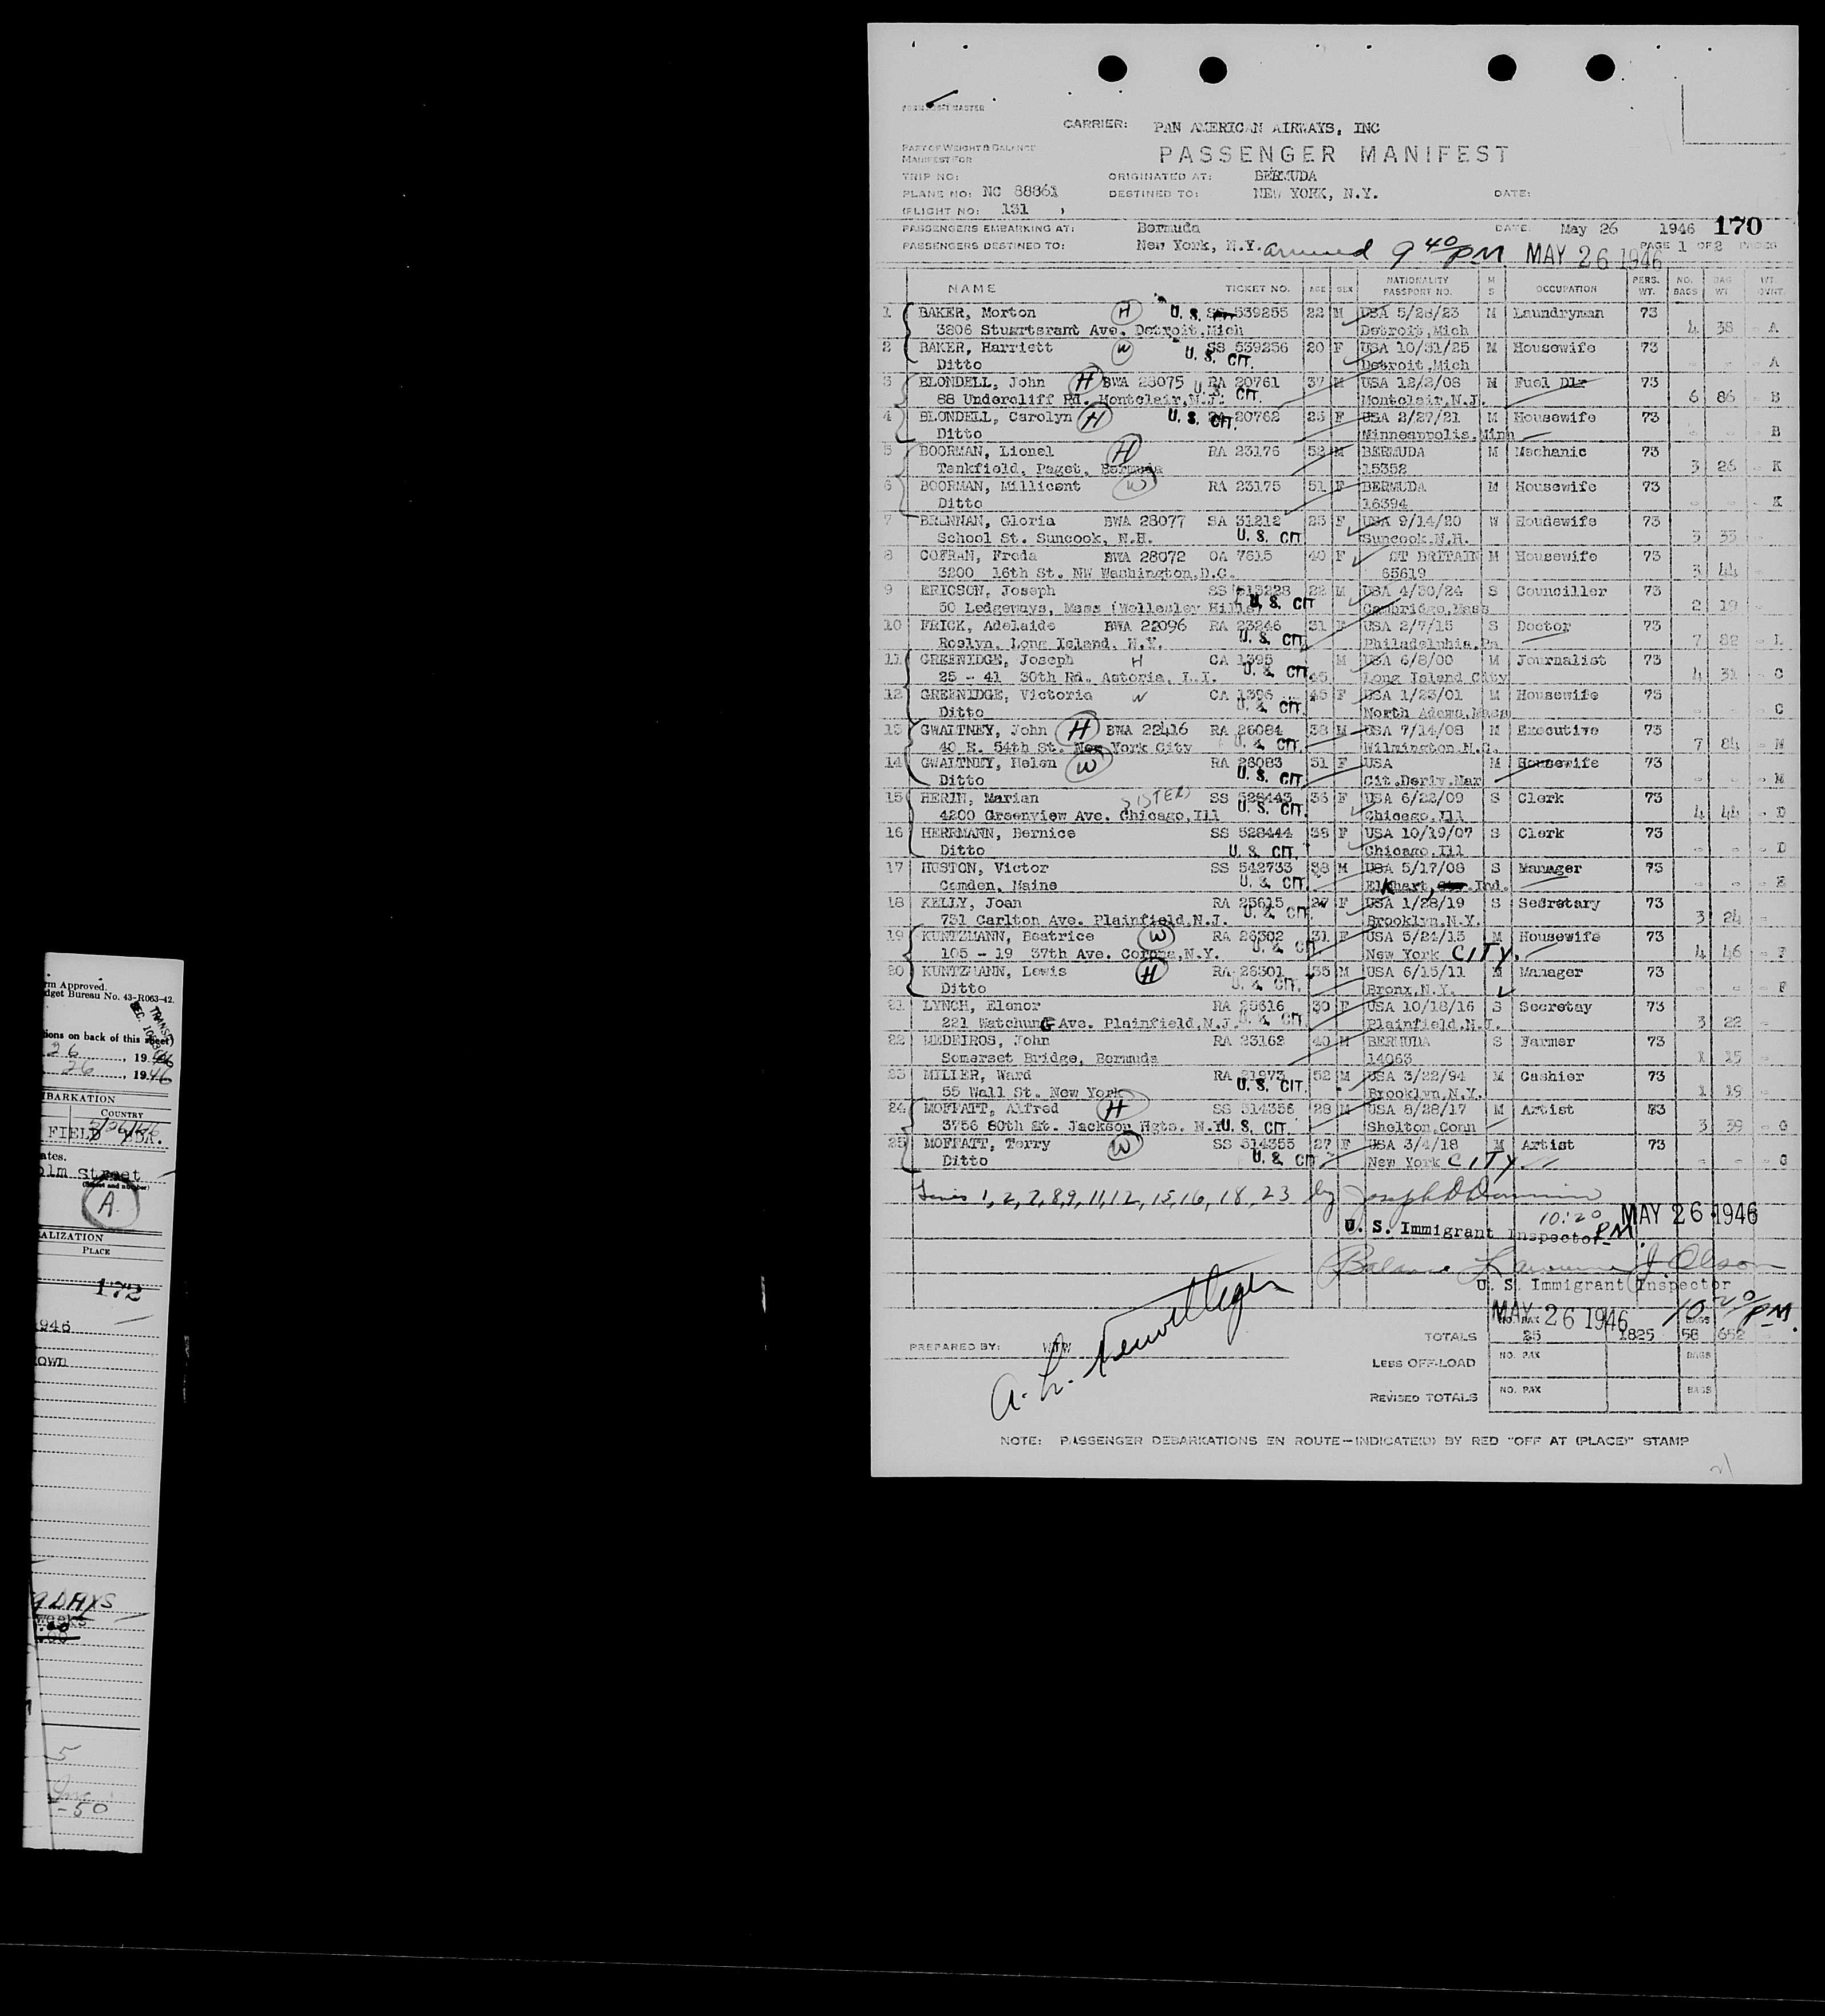 rm Approved.
dget Bureau No. 43-R063-42.
tions on back of this sheet)
26, 1946
26, 1946
MBARKATION
COUNTRY
FIELD BDA.
ates.
olm Street
(Street and number)
A
ALIZATION
PLACE
172
1946
OWN
9 DAYS
weeks
5
-50
CARRIER: PAN AMERICAN AIRWAYS, INC
PART OF WEIGHT & BALANCE
MANIFEST FOR
PASSENGER MANIFEST
TRIP NO: ORIGINATED AT: BERMUDA
PLANE NO: NC 88861 DESTINED TO: NEW YORK, N.Y. DATE:
(FLIGHT NO: 131 )
PASSENGERS EMBARKING AT: Bermuda DATE May 26 1946 170
PASSENGERS DESTINED TO: New York, N.Y. arrived 9 40 PM MAY 26 1946 PAGE 1 OF 2 PAGES
NAME TICKET NO. AGE SEX NATIONALITY PASSPORT NO. M S OCCUPATION PERS. WT. NO. BAGS BAG WT.
1 BAKER, Morton H U. S. SS 539255 22 M USA 5/28/23 M Laundryman 73
3806 Stuartsrant Ave. Detroit,Mich Detroit,Mich 4 38 - A
2 BAKER, Harriett W SS 539256 20 F USA 10/31/25 M Housewife 73
Ditto U. S. CIT. Detroit,Mich - - - A
3 BLONDELL, John H BWA 28075 RA 20761 37 M USA 12/2/08 M Fuel Dlr 73
88 Undercliff Rd. Montclair,N.J. U. S. CIT. Montclair,N.J. 6 86 - B
4 BLONDELL, Carolyn H U. S. CIT. 20762 25 F USA 2/27/21 M Housewife 73
Ditto Minneapolis,Minn - - - B
5 BOORMAN, Lionel H RA 23176 52 M BERMUDA M Mechanic 73
Tankfield, Paget, Bermuda 15352 3 26 - K
6 BOORMAN, Millicent W RA 23175 51 F BERMUDA M Housewife 73
Ditto 16394 - - - K
7 BRENNAN, Gloria BWA 28077 SA 31212 25 F USA 9/14/20 W Houdewife 73
School St. Suncook, N.H. U. S. CIT Suncook,N.H. 3 33 -
8 COFRAN, Freda BWA 28072 OA 7615 40 F GT BRITAIN M Housewife 73
3200 16th St. NW Washington,D.C. 65619 3 44 -
9 ERICSON, Joseph SS 513228 22 M USA 4/30/24 S Counciller 73
30 Ledgeways, Mass (Wellesley Hills) U. S. CIT Cambridge,Mass 2 19 -
10 FRICK, Adelaide BWA 22096 RA 23246 31 F USA 2/7/15 S Doctor 73
Roslyn, Long Island, N.Y. U. S. CIT. Philadelphia,Pa 7 82 - L
11 GREENIDGE, Joseph H CA 1395 M USA 6/8/00 M Journalist 73
25 - 41 30th Rd. Astoria, L.I. U. S. CIT. 45 Long Island City 4 31 - C
12 GREENIDGE, Victoria W CA 1396 45 F USA 1/23/01 M Housewife 73
Ditto U. S. CIT. North Adams,Mass - - - C
13 GWALTNEY, John H BWA 22416 RA 26084 38 M USA 7/14/08 M Executive 73
40 E. 54th St. New York City U. S. CIT. Wilmington,N.C. 7 84 - M
14 GWALTNEY, Helen W RA 26083 31 F USA M Housewife 73
Ditto U. S. CIT Cit.Deriv.Mar - - - M
15 HERIN, Marian SISTERS SS 528443 36 F USA 6/22/09 S Clerk 73
4200 Greenview Ave. Chicago,Ill U. S. CIT. Chicago,Ill 4 44 - D
16 HERRMANN, Bernice SS 528444 38 F USA 10/19/07 S Clerk 73
Ditto U. S. CIT. Chicago,Ill - - - D
17 HUSTON, Victor SS 542733 38 M USA 5/17/08 S Manager 73
Camden, Maine U. S. CIT. Elkhart, Ind. - - - E
18 KELLY, Joan RA 25615 27 F USA 1/28/19 S Secretary 73
731 Carlton Ave. Plainfield,N.J. U. S. CIT. Brooklyn,N.Y. 3 24 -
19 KUNTZMANN, Beatrice W RA 26302 31 F USA 5/24/15 M Housewife 73
105 - 19 37th Ave. Corona,N.Y. U. S. CIT New York CITY. 4 46 - F
20 KUNTZMANN, Lewis H RA 26301 35 M USA 6/15/11 M Manager 73
Ditto U. S. CIT. Bronx,N.Y. - - - F
21 LYNCH, Elenor RA 25616 30 F USA 10/18/16 S Secretay 73
221 Watchung Ave. Plainfield,N.J. U. S. CIT. Plainfield,N.J. 3 22 -
22 MEDEIROS, John RA 23162 40 M BERMUDA S Farmer 73
Somerset Bridge, Bermuda 14063 1 15 -
23 MILLER, Ward RA 21973 52 M USA 3/22/94 M Cashier 73
55 Wall St. New York U. S. CIT. Brooklyn,N.Y. 1 19 -
24 MOFFATT, Alfred H SS 514356 28 M USA 8/28/17 M Artist 73
3756 80th St. Jackson Hgts. N.Y. U. S. CIT. Shelton,Conn 3 39 - G
25 MOFFATT, Terry W SS 514355 27 F USA 3/4/18 M Artist 73
Ditto U. S. CIT New York CITY - - - G
Lines 1, 2, 7, 8, 9, 11, 12, 15, 16, 18, 23 by Joseph D.
10:20 PM MAY 26 1946
U. S. Immigrant Inspector
Balance Lawrence J Olson
U. S. Immigrant Inspector
MAY 26 1946 10 20 PM.
NO. PAX BAGS
TOTALS 25 1825 58 652
PREPARED BY: WTW
LESS OFF-LOAD NO. PAX BAGS
REVISED TOTALS NO. PAX BAGS
NOTE: PASSENGER DEBARKATIONS EN ROUTE—INDICATE(D) BY RED "OFF AT (PLACE)" STAMP